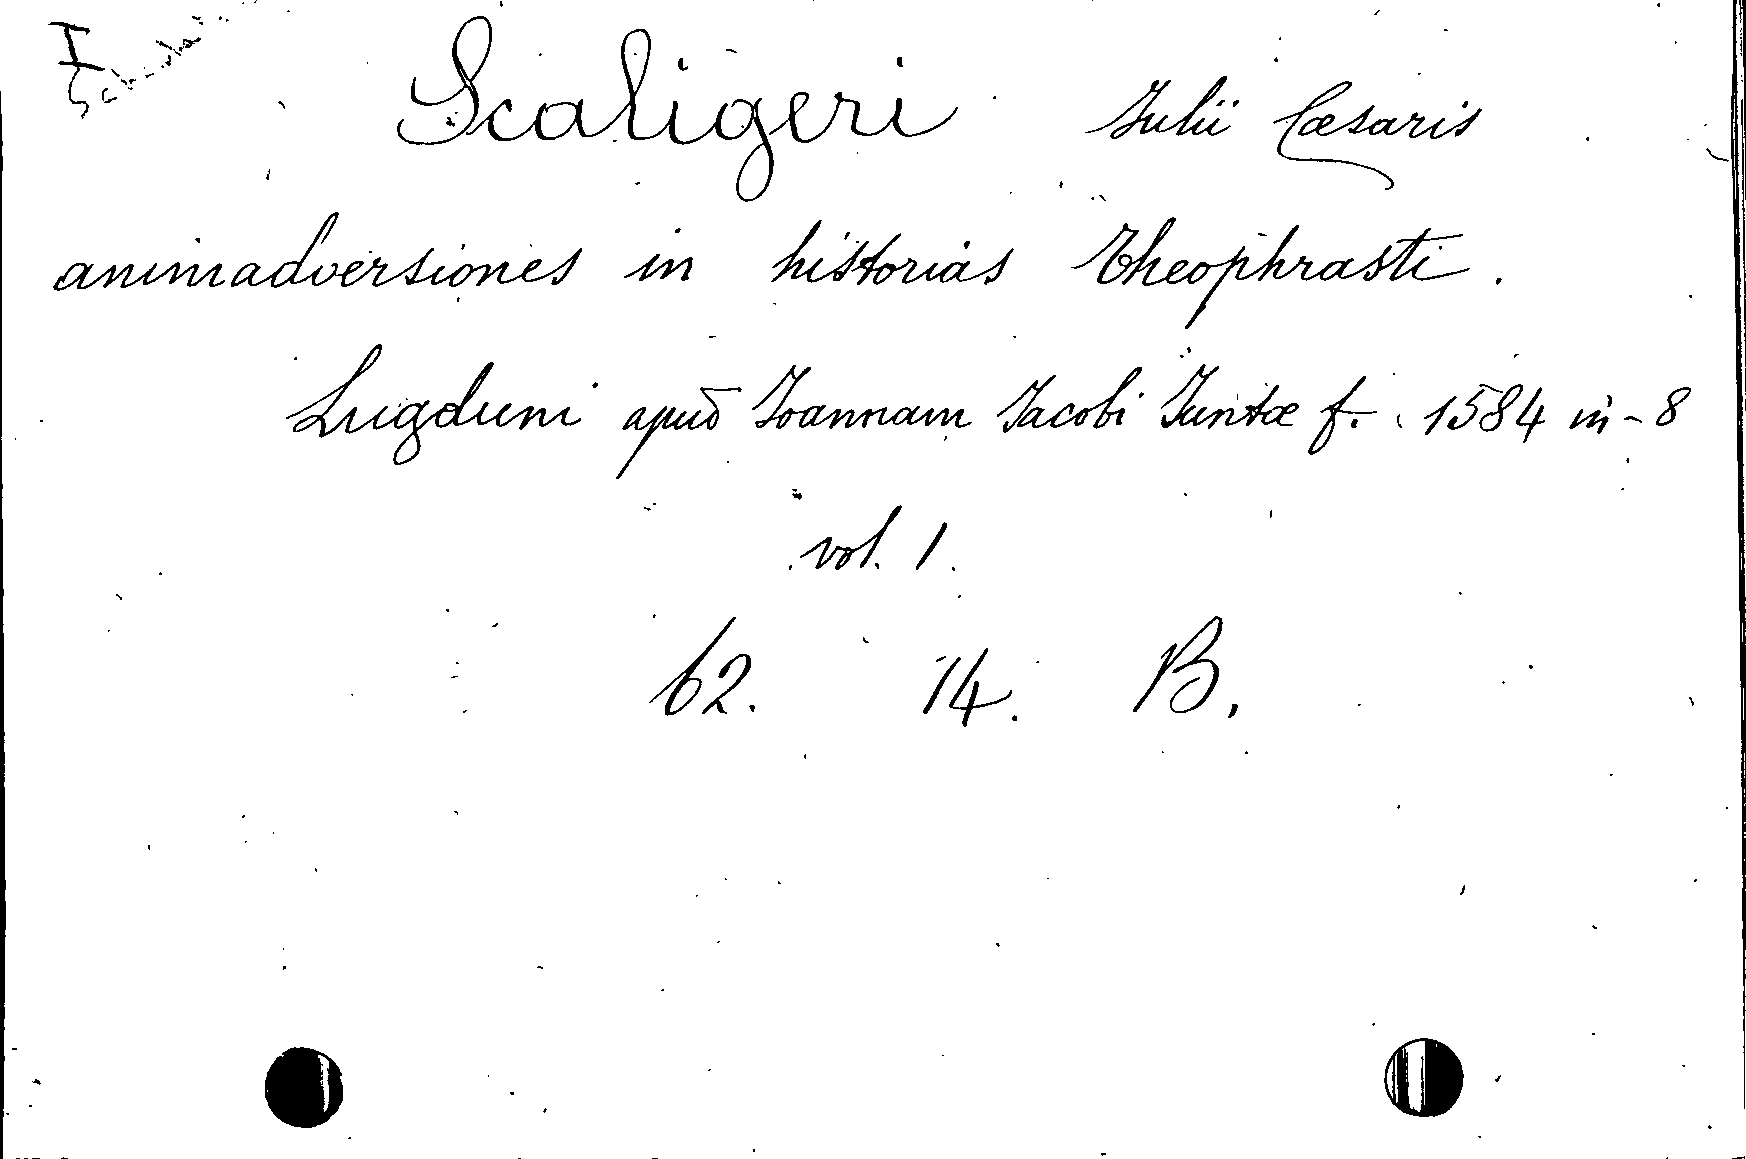 I
Scaligeri Julii Cæsaris
animadversiones in historias Theophrasti.
Lugduni apud Joannam Jacobi Juntæ f. 1584 in-8
vol. 1.
62. 14. B.